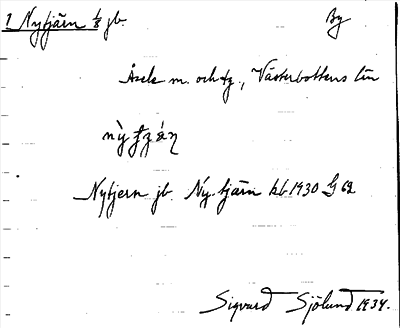 1 Nytjärn 1/8 jb. By
Åsele m. och tg., Västerbottens län
Nytjern jb. Ny-tjärn kb 1930 G 62
Sigvard Sjölund 1934.